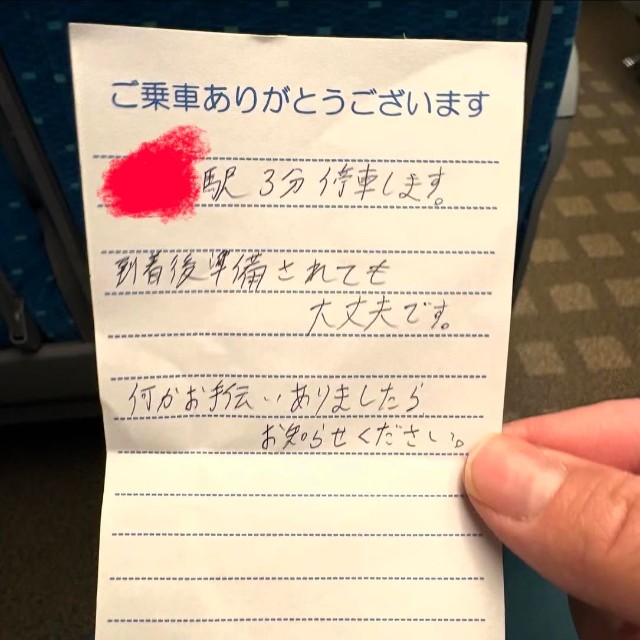 ご乗車ありがとうございます
駅 3分停車します。
到着後準備されても
大丈夫です。
何かお手伝いありましたら
お知らせください。